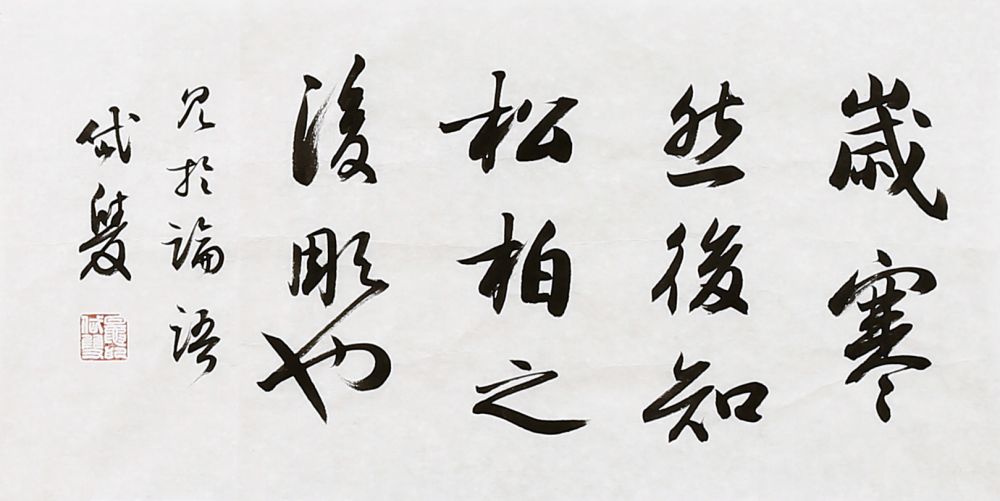 歲寒
然後知
松柏之
後彫也
見於論語
岱